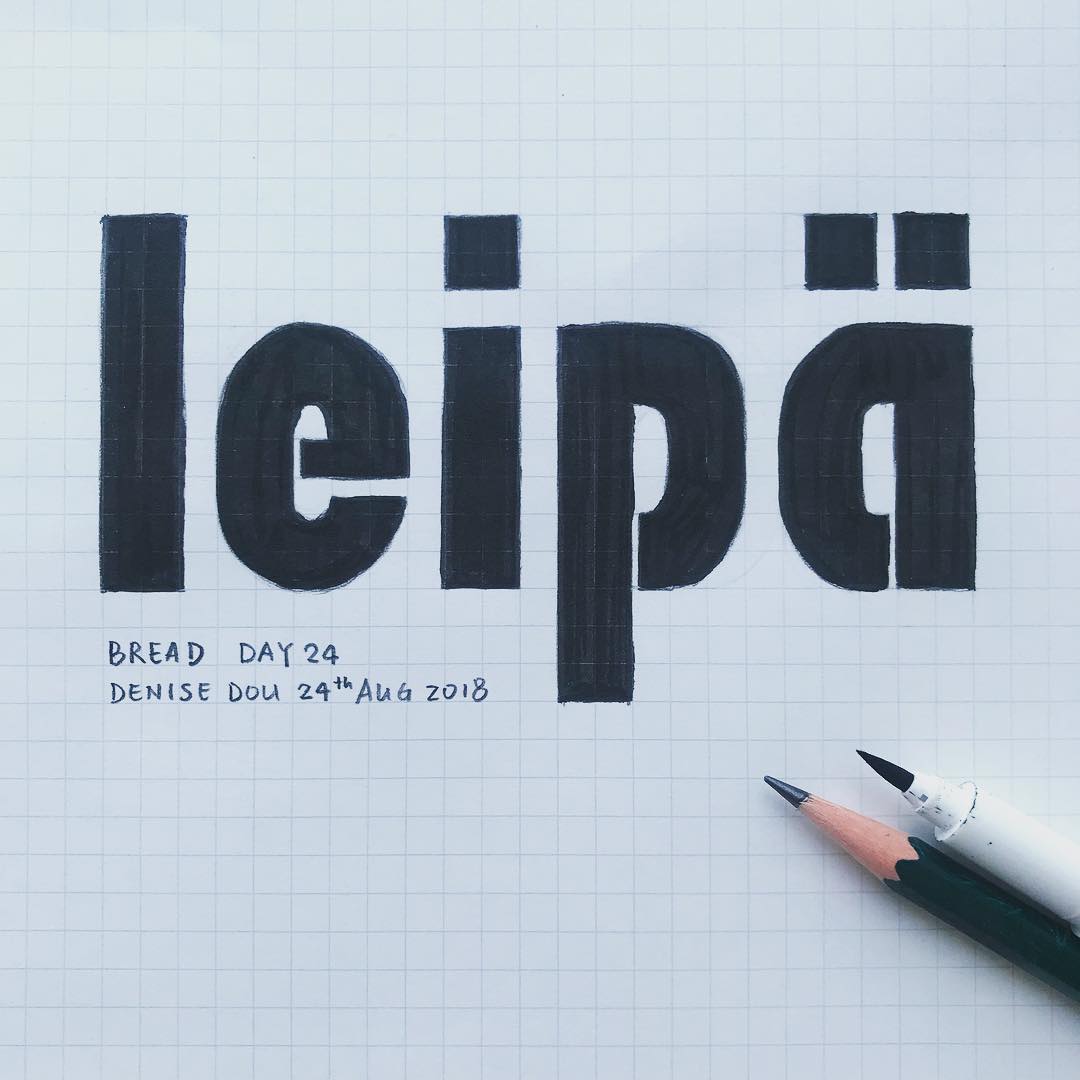 leipä
BREAD DAY 24
DENISE DOU 24th AUG 2018